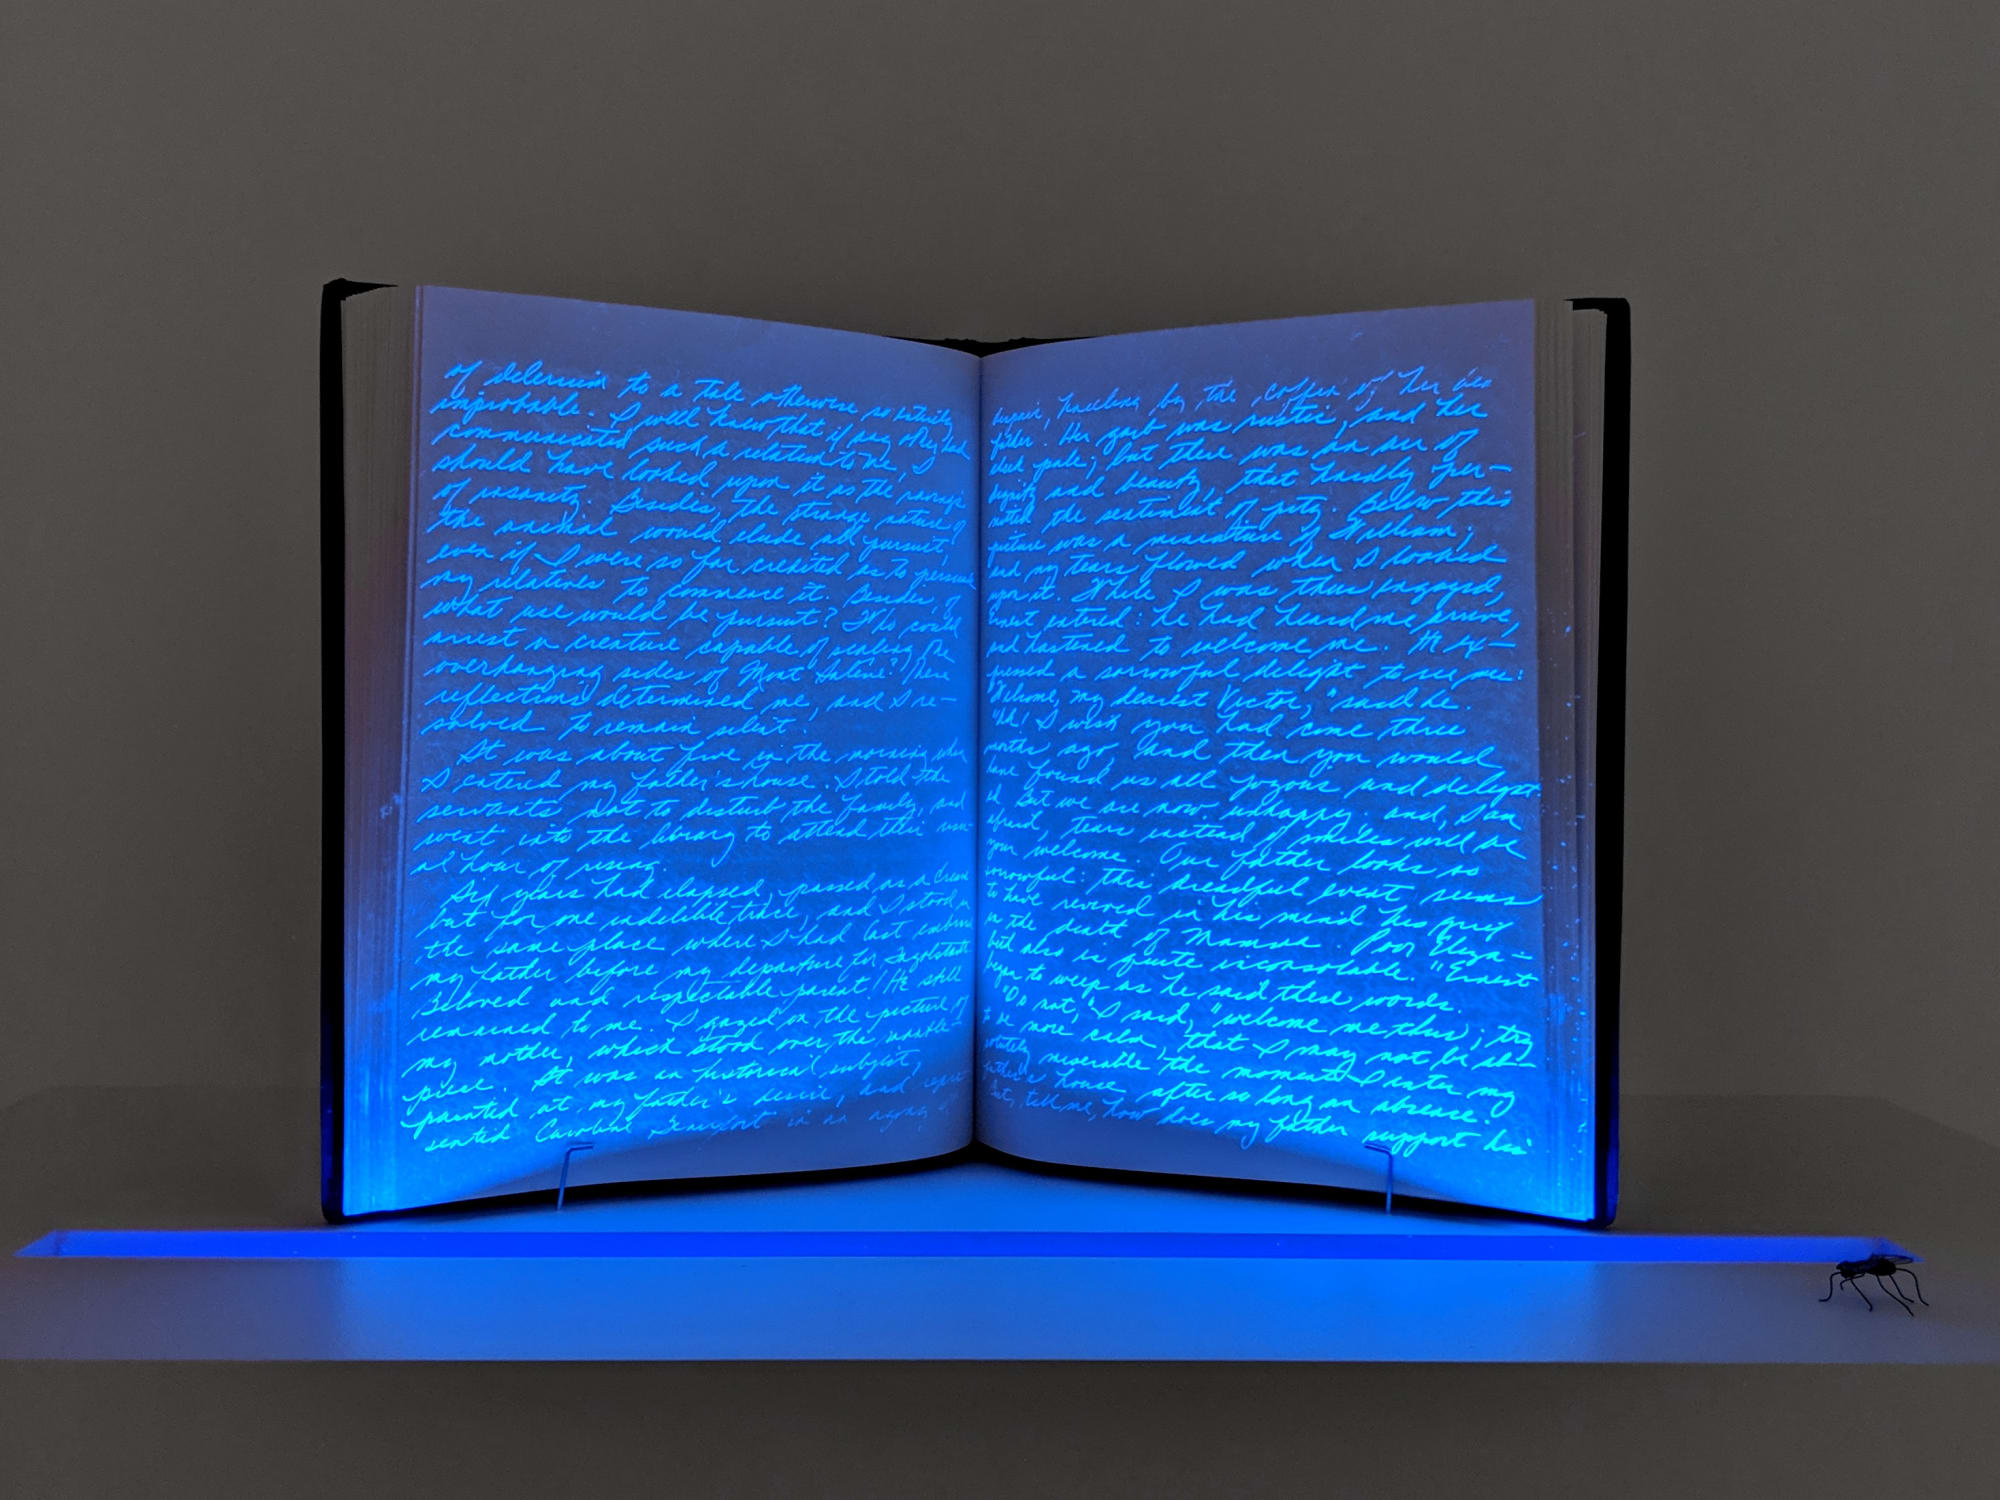 of delerium to a tale otherwise so utterly
improbable. I well knew that if any other had
communicated such a relation to me, I
should have looked upon it as the ravings
of insanity. Besides, the strange nature of
the animal would elude all pursuit,
even if I were so far credited as to persuade
my relatives to commence it. Besides, of
what use would be pursuit? Who could
arrest a creature capable of scaling the
overhanging sides of Mont Salêve? These
reflections determined me, and I re-
solved to remain silent.
It was about five in the morning when
I entered my father's house. I told the
servants not to disturb the family, and
went into the library to attend their usu-
al hour of rising.
Six years had elapsed, passed as a dream
but for one indelible trace, and I stood in
the same place where I had last embraced
my father before my departure for Ingolstadt.
Beloved and respectable parent! He still
remained to me. I gazed on the picture of
my mother, which stood over the mantle-
piece. It was an historical subject,
painted at my father's desire, and repre-
sented Caroline Beaufort in an agony of
despair, kneeling by the coffin of her dead
father. Her garb was rustic, and her
cheek pale; but there was an air of
dignity and beauty, that hardly per-
mitted the sentiment of pity. Below this
picture was a miniature of William;
and my tears flowed when I looked
upon it. While I was thus engaged,
Ernest entered: he had heard me arrive,
and hastened to welcome me. He ex-
pressed a sorrowful delight to see me:
"Welcome, my dearest Victor," said he.
"Ah! I wish you had come three
months ago, and then you would
have found us all joyous and delight-
ed. But we are now unhappy. and, I am
afraid, tears instead of smiles will be
your welcome. Our father looks so
sorrowful: this dreadful event seems
to have revived in his mind his grief
on the death of Mamma. Poor Eliza-
beth also is quite inconsolable." Ernest
began to weep as he said these words.
"Do not," I said, "welcome me thus; try
to be more calm, that I may not be ab-
solutely miserable the moment I enter my
father's house after so long an absence.
But, tell me, how does my father support his